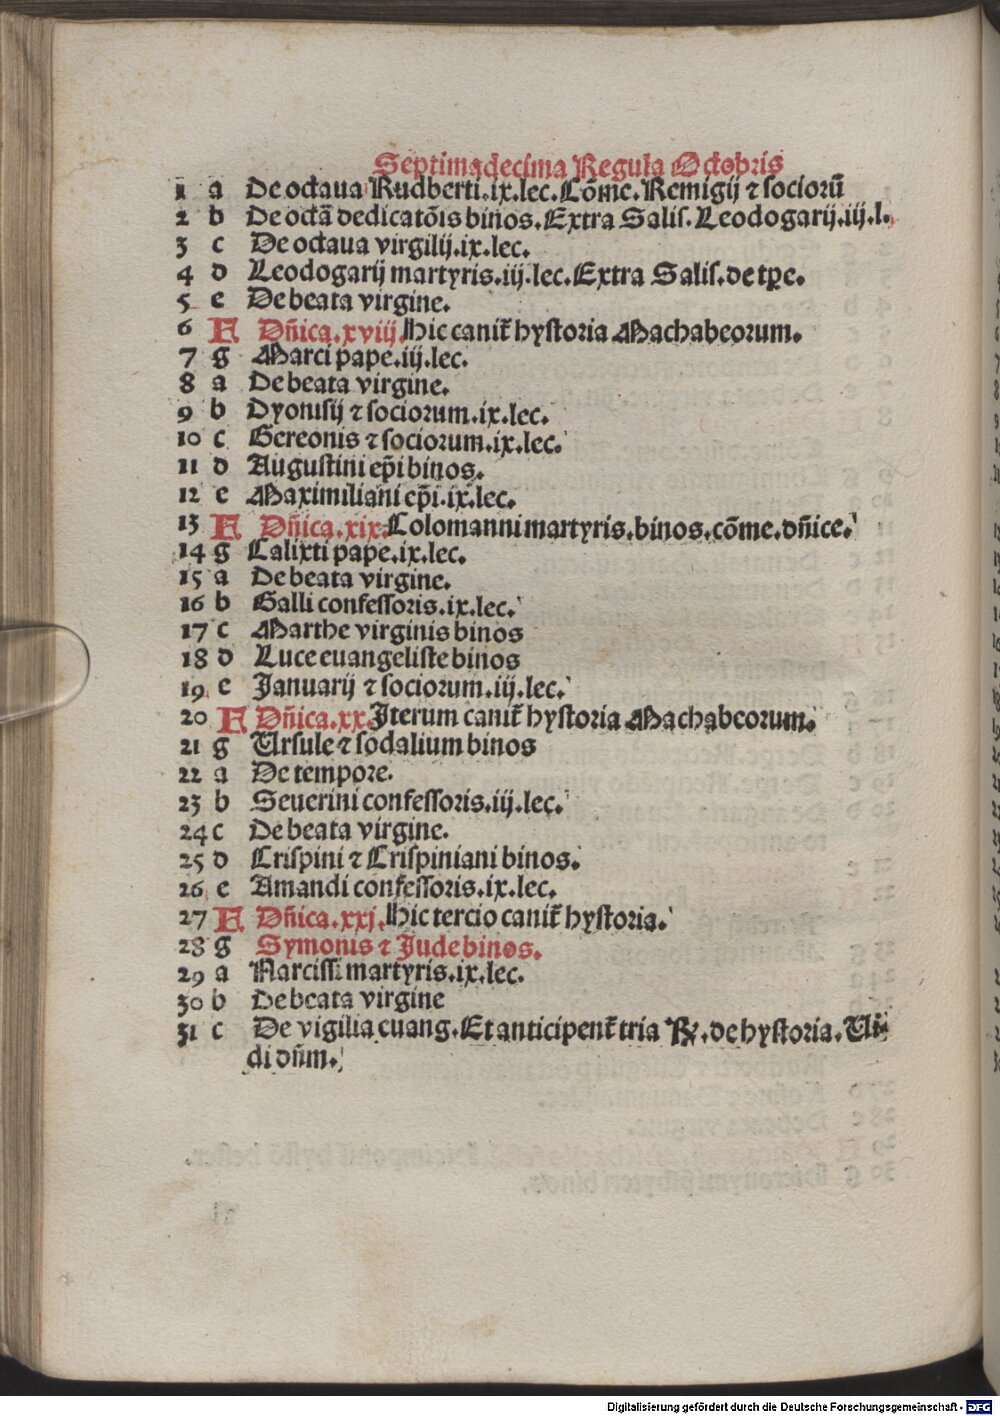 Septimadecima Regula Octobris
1 a De octaua Rudberti.ix.lec.Cōme.Remigij ⁊ sociorū
2 b De octā dedicatōis binos.Extra Salis.Leodogarij.iij.l.
3 c De octaua virgilij.ix.lec.
4 d Leodogarij martyris.iij.lec.Extra Salis.de tꝑe.
5 e De beata virgine.
6 F Dñica.xviij.Hic canit᷑ hystoria Machabeorum.
7 g Marci pape.iij.lec.
8 a De beata virgine.
9 b Dyonisij ⁊ sociorum.ix.lec.
10 c Gereonis ⁊ sociorum.ix.lec.
11 d Augustini ep̄i binos.
12 e Maximiliani ep̄i.ix.lec.
13 F Dñica.xix.Colomanni martyris.binos.cōme.dñice.
14 g Calixti pape.ix.lec.
15 a De beata virgine.
16 b Galli confessoris.ix.lec.
17 c Marthe virginis binos
18 d Luce euangeliste binos
19 e Januarij ⁊ sociorum.iij.lec.
20 F Dñica.xx.Iterum canit᷑ hystoria Machabeorum.
21 g Ursule ⁊ sodalium binos
22 a De tempore.
23 b Seuerini confessoris.iij.lec.
24 c De beata virgine.
25 d Crispini ⁊ Crispiniani binos.
26 e Amandi confessoris.ix.lec.
27 F Dñica.xxj.Hic tercio canit᷑ hystoria.
28 g Symonis ⁊ Jude binos.
29 a Narcissi martyris.ix.lec.
30 b De beata virgine
31 c De vigilia euang.Et anticipent᷑ tria ℟.de hystoria.Ui-
di dn̄m.
Digitalisierung gefördert durch die Deutsche Forschungsgemeinschaft - DFG